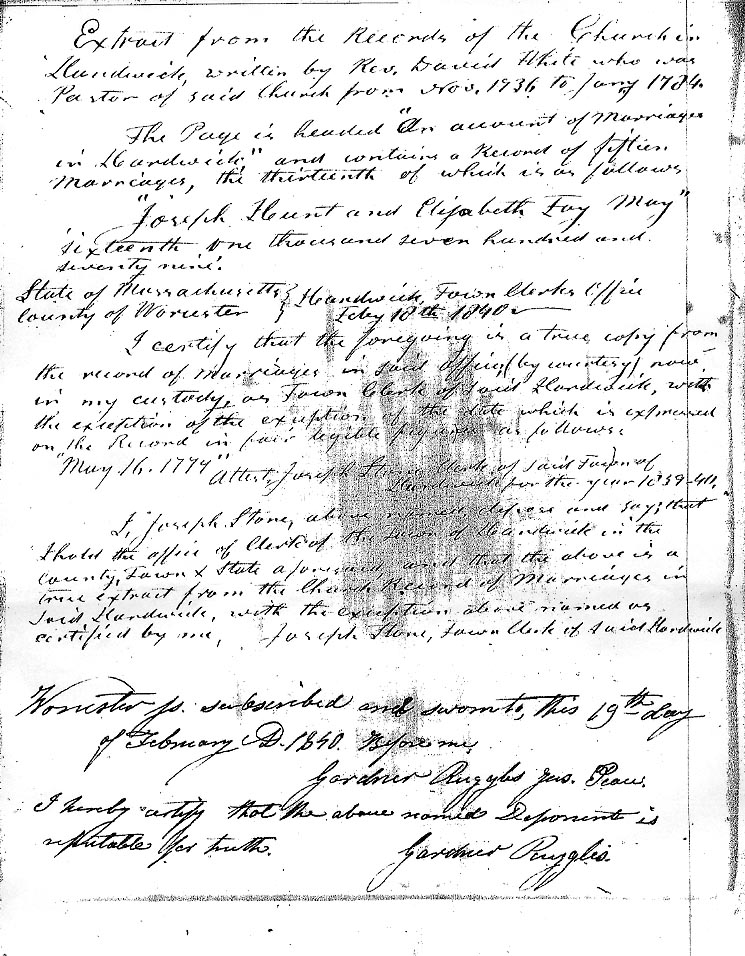 Extract from the Records of the Church in
Hardwick, written by Rev. David White who was
Pastor of said Church from Nov. 1736 to Jany 1784.
The Page is headed "An account of Marriages
in Hardwick," and contains a Record of fifteen
Marriages, the thirteenth of which is as follows
"Joseph Hunt and Elizabeth Fay May"
Sixteenth one thousand seven hundred and
seventy nine.
State of Massachusetts } Hardwick, Town Clerks Office
County of Worcester } Feby 18th 1840
I certify that the foregoing is a true copy from
the record of Marriages in said office, (by courtesy), now
in my custody, as Town Clerk of said Hardwick, with
the exception of the exception of the date which is expressed
on the Record in fair legible figures as follows.
"May 16. 1779" Attest, Joseph Stone Clerk of said Town of
Hardwick for the year 1839-40.
I, Joseph Stone, above named, depose and say, that
I hold the office of Clerk of the town of Hardwick in the
County, Town & State aforesaid, and that the above is a
true extract from the Church Record of Marriages in
said Hardwick, with the exception above named as
certified by me, Joseph Stone, Town Clerk of said Hardwick
Worcester ss. subscribed and sworn to, this 19th day
of February A.D. 1840. Before me,
Gardner Ruggles Jus. Peace.
I hereby certify that the above named Deponent is
reputable for truth. Gardner Ruggles.